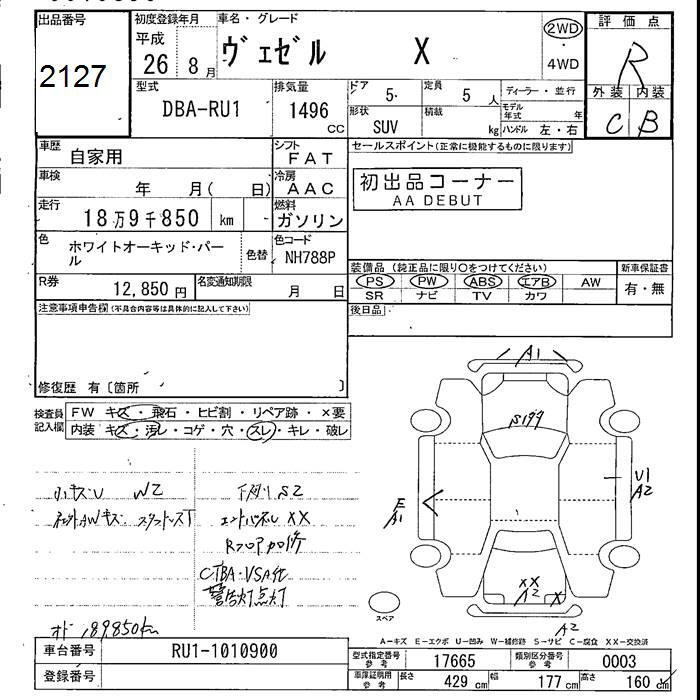 出品番号
2127
初度登録年月
平成
26 8月
車名・グレード
ヴェゼル X
2WD
・
4WD
評価点
R
外装 内装
C B
型式
DBA-RU1
排気量
1496
CC
ドア 5
定員 5 人
ディーラー・並行
形状
SUV
積載
kg
モデル年式 年
ハンドル 左・右
車歴
自家用
シフト
FAT
セールスポイント(正常に機能するものに限ります)
車検
年 月( 日)
冷房
AAC
初出品コーナー
AA DEBUT
走行
18万9千850 km
燃料
ガソリン
色
ホワイトオーキッド・パール
色替
色コード
NH788P
装備品(純正品に限り○をつけてください)
新車保証書
PS PW ABS エアB AW
SR ナビ TV カワ
有・無
R券
12,850円
名変通知期限
月 日
後日品
注意事項申告欄(不具合内容等は具体的に記入して下さい)
修復歴 有〔箇所 〕
検査員記入欄
FW キズ・飛石・ヒビ割・リペア跡・×要
内装 キズ・汚レ・コゲ・穴・スレ・キレ・破レ
小キズU W2
下廻りS2
エンドパネルXX
Rフロア加修
CTBA・VSA他
警告灯点灯
オド 189850km
A1
S199
E
A1
U1
A2
XX
A2 X
A2
スペア
A-キズ E-エクボ U-凹み W-補修跡 S-サビ C-腐食 XX-交換済
車台番号
RU1-1010900
登録番号
型式指定番号参考
17665
類別区分番号参考
0003
車庫証明用参考
長さ 429cm
幅 177cm
高さ 160cm